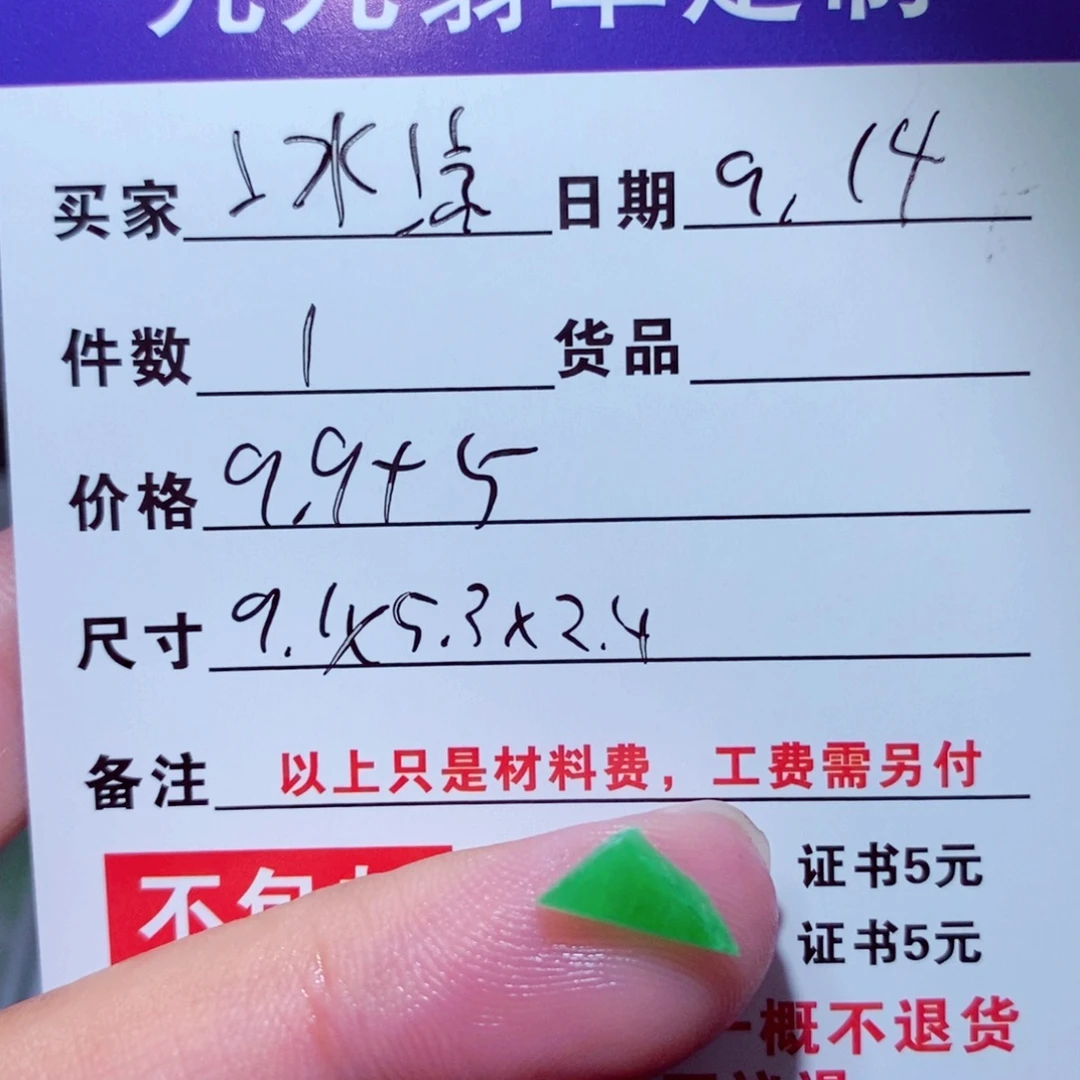 买家 日期 9.14
件数 1 货品
价格 9.9+5
尺寸 9.1x5.3x2.4
备注 以上只是材料费，工费需另付
证书5元
不包
证书5元
一概不退货